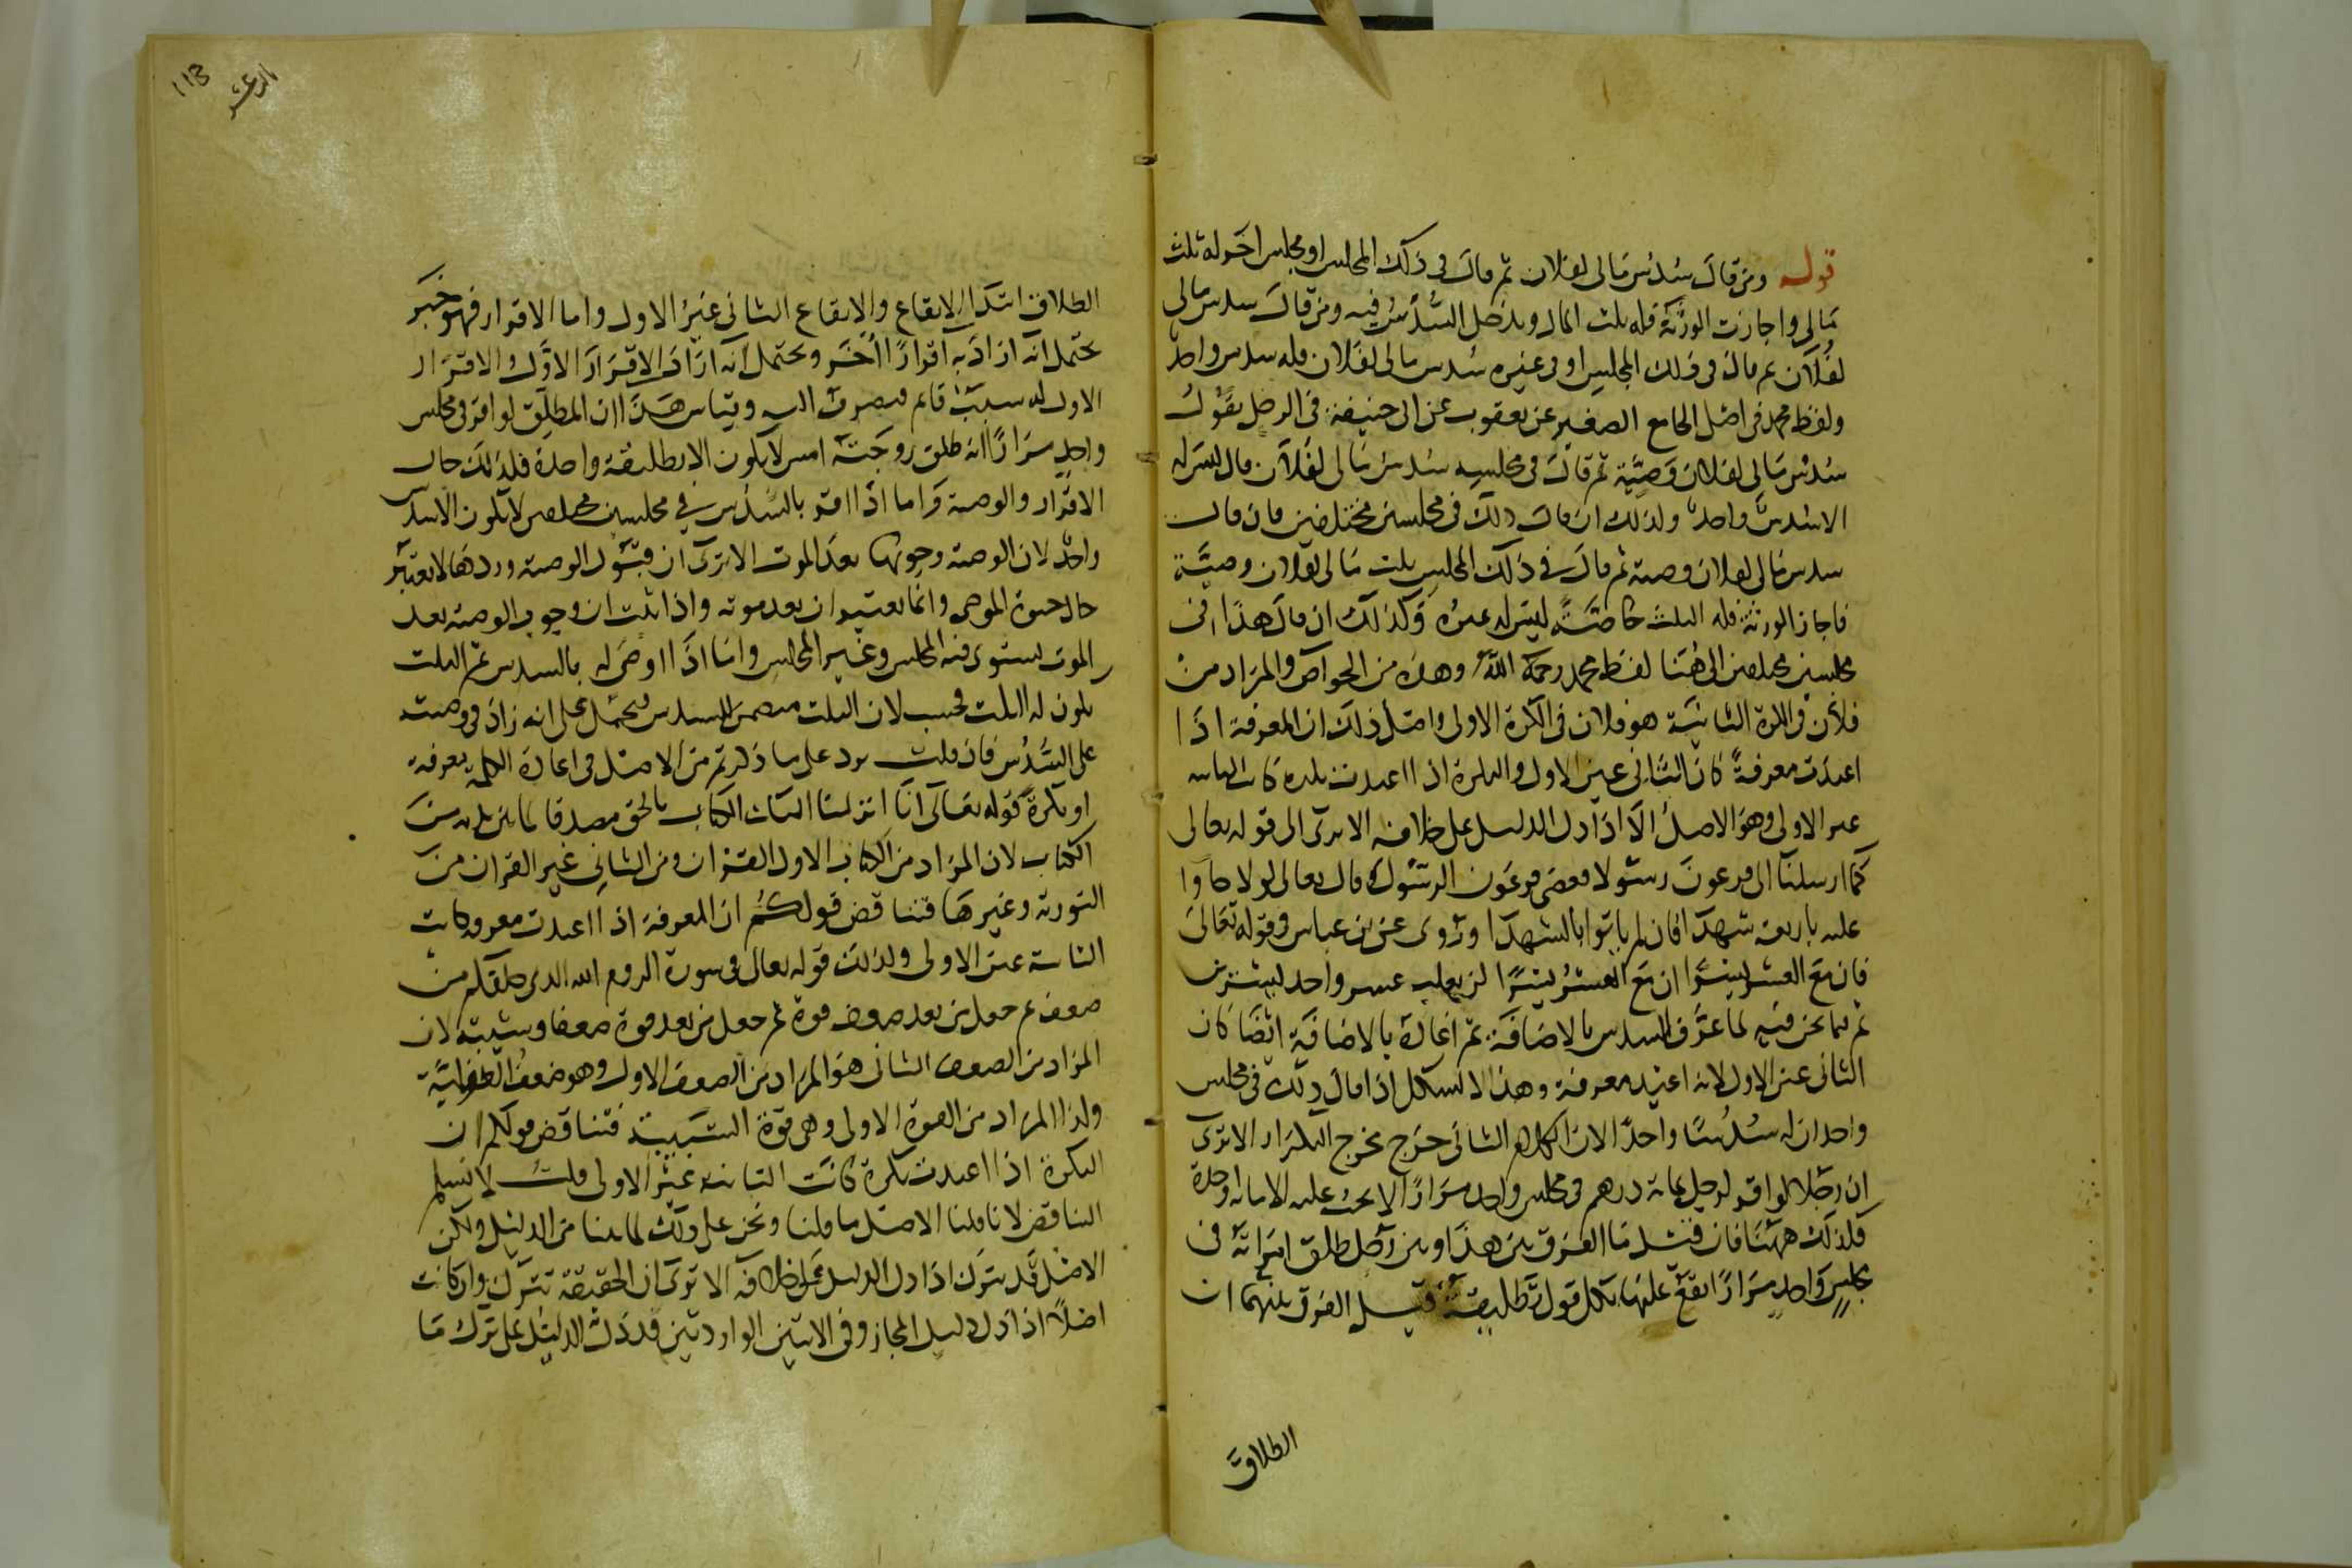 قوله ومن قال سدس مالى لفلان ثم قال فى ذلك المجلس او مجلس اخر له ثلث
مالى واجازت الورثة فله ثلث المال ويدخل السدس فيه ومن قال سدس مالى
لفلان ثم قال فى ذلك المجلس او فى غيره سدس مالى لفلان فله سدس واحد
ولفظ محمد فى اصل الجامع الصغير عن يعقوب عن ابى حنيفة فى الرجل يقول
سدس مالى لفلان وصية ثم قال فى مجلسه سدس مالى لفلان قال ليس له
الا سدس واحد وكذلك ان قال ذلك فى مجلسين مختلفين فان قال
سدس مالى لفلان وصية ثم قال فى ذلك المجلس ثلث مالى لفلان وصية
فاجاز الورثة فله الثلث خاصة ليس له غيره وكذلك ان قال هذا فى
مجلسين مختلفين الى هنا لفظ محمد رحمه الله وهذه من الخواص والمراد من
فلان فى الكرة الثانية هو فلان فى الكرة الاولى واصل ذلك ان المعرفة اذا
اعيدت معرفة كان الثانى عين الاول والنكرة اذا اعيدت نكرة كانت الثانية
غير الاولى وهو الاصل الا اذا دل الدليل على خلافه الا يرى الى قوله تعالى
كما ارسلنا الى فرعون رسولا فعصى فرعون الرسول قال تعالى لولا جاوا
عليه باربعة شهدا فان لم ياتوا بالشهدا وروى عن بن عباس فى قوله تعالى
فان مع العسر يسرا ان مع العسر يسرا لن يغلب عسر واحد يسرين
ثم فيما نحن فيه لما عرف السدس بالاضافة ثم اعاده بالاضافة ايضا كان
الثانى عين الاول لانه اعيد معرفة وهذا لا يشكل اذا قال ذلك فى مجلس
واحد ان له سدسا واحدا لان الكلام الثانى خرج مخرج التكرار الا ترى
ان رجلا لو اقر لرجل بمائة درهم فى مجلس واحد مرارا لا يجب عليه الا مائة واحدة
فلذلك ههنا فان قيل ما الفرق بين هذا وبين رجل طلق امراته فى
مجلس واحد مرارا يقع عليها بكل قول تطليقة قيل الفرق بينهما ان
الطلاق
113
الطلاق ابتدا الايقاع والايقاع الثانى غير الاول واما الاقرار فهو خبر
يحتمل انه اراد به اقرارا اخر ويحتمل انه اراد الاقرار الاول والاقرار
الاول له سبب قايم فيصرف اليه وقياس هذا ان المطلق لو اقر فى مجلس
واحد مرارا انه طلق زوجته امس لا يكون الا تطليقة واحدة فلذلك حال
الاقرار والوصية واما اذا اقر بالسدس فى مجلسين مختلفين لا يكون الا سدس
واحد لان الوصية وجوبها بعد الموت الا ترى ان قبول الوصية وردها لا يعتبر
حال حيوة الموصى وانما يعتبر ان بعد موته واذا ثبت ان وجوب الوصية بعد
الموت يستوى فيه المجلس وغير المجلس واما اذا اوصى له بالسدس ثم الثلث
يكون له الثلث فحسب لان الثلث متضمن للسدس فيحمل على انه زاد فى وصيته
على السدس فان قلت يرد على ما ذكرتم من الاصل فى اعادة الكلمة معرفة
او نكرة قوله تعالى انا انزلنا اليك الكتاب بالحق مصدقا لما بين يديه من
الكتاب لان المراد من الكتاب الاول القران ومن الثانى غير القران من
التورية وغيرها فتناقض قولكم ان المعرفة اذا اعيدت معرفة كانت
الثانية عين الاولى وكذلك قوله تعالى فى سورة الروم الله الذى خلقكم من
ضعف ثم جعل من بعد ضعف قوة ثم جعل من بعد قوة ضعفا وشيبة لان
المراد من الضعف الثانى هو المراد من الضعف الاول وهو ضعف الطفولية
وكذا المراد من القوة الاولى وهى قوة الشبيبة فتناقض قولكم ان
النكرة اذا اعيدت نكرة كانت الثانية غير الاولى قلت لا نسلم
التناقض لانا قلنا الاصل ما قلنا ونحن على ذلك لما بينا من الدليل ولكن
الاصل قد يترك اذا دل الدليل على خلافه الا ترى ان الحقيقة تترك وان كانت
اصلا اذا دل دليل المجاز وفى الايتين الواردتين قد دل الدليل على ترك ما